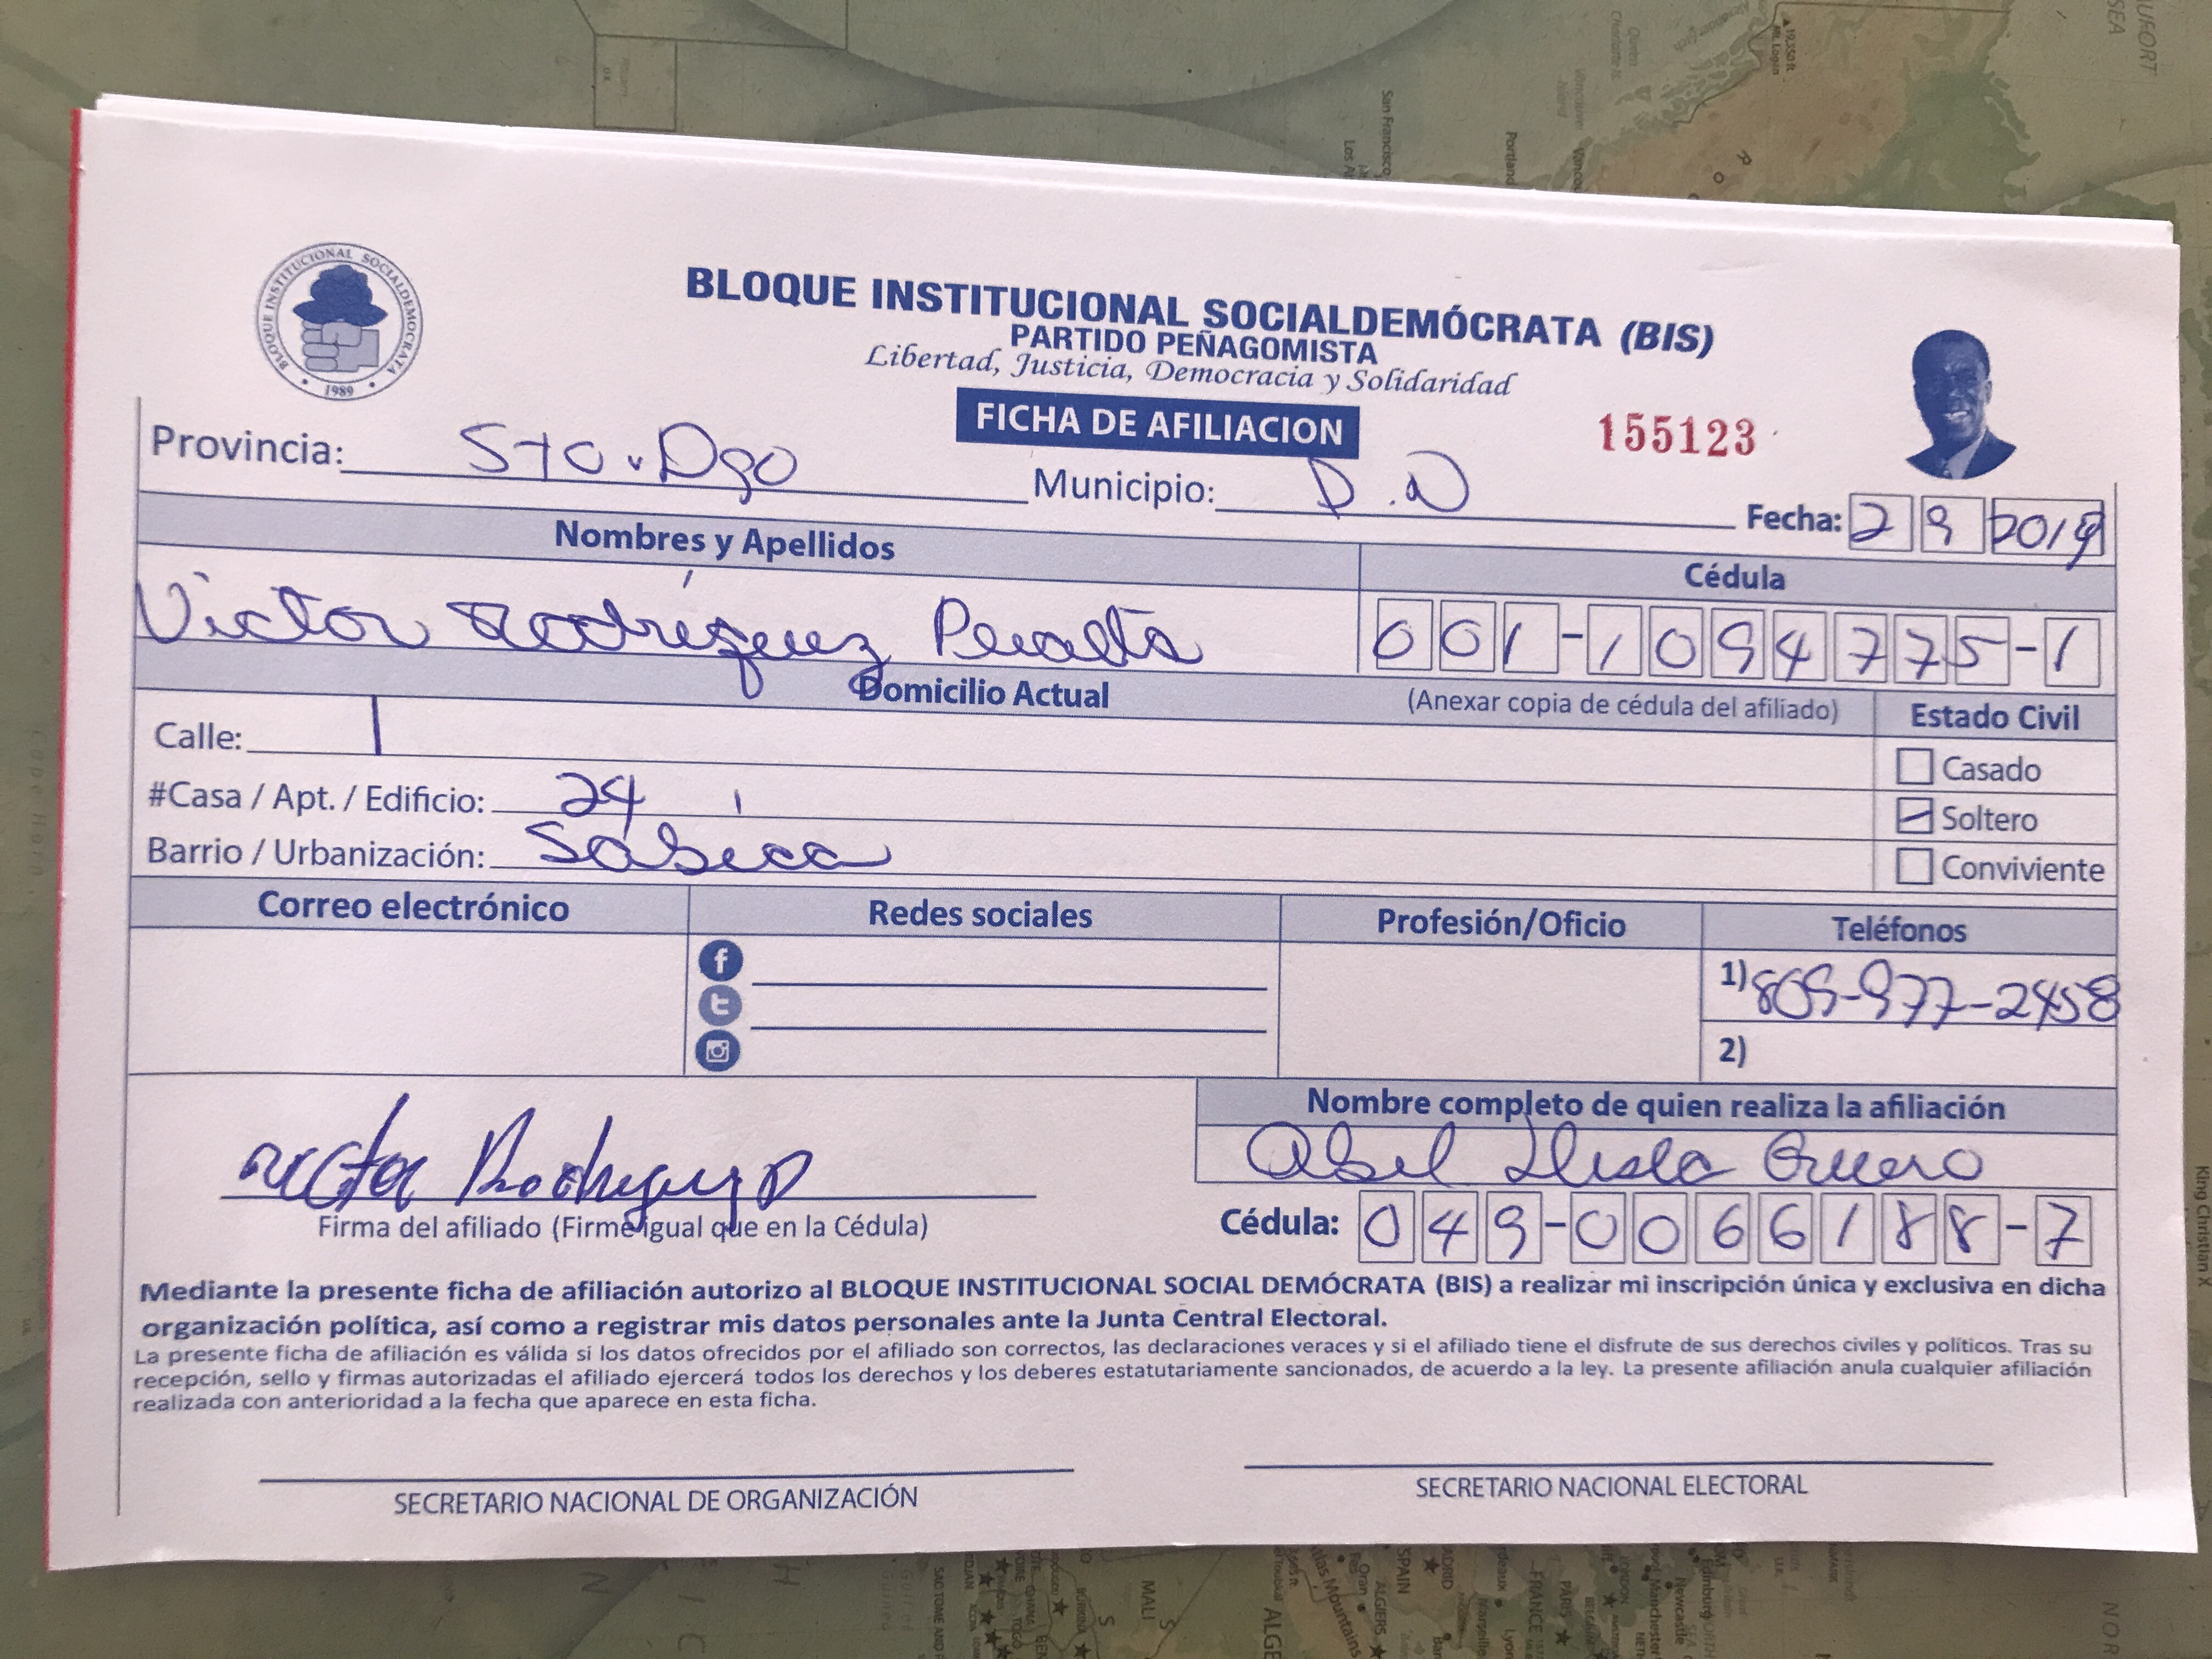 BLOQUE INSTITUCIONAL SOCIALDEMOCRATA
1989
BLOQUE INSTITUCIONAL SOCIALDEMÓCRATA (BIS)
PARTIDO PEÑAGOMISTA
Libertad, Justicia, Democracia y Solidaridad
FICHA DE AFILIACION
155123
Provincia: Sto. Dgo Municipio: D.N Fecha: 2 9 2019
Nombres y Apellidos Cédula
Victor Rodríguez Peralta 001-1094775-1
Domicilio Actual (Anexar copia de cédula del afiliado) Estado Civil
Calle: 1
Casado
#Casa / Apt. / Edificio: 24
Soltero
Barrio / Urbanización:
Conviviente
Correo electrónico Redes sociales Profesión/Oficio Teléfonos
1) 809-977-2458
2)
Nombre completo de quien realiza la afiliación
Victor Rodriguez P Abel
Firma del afiliado (Firme igual que en la Cédula) Cédula: 049-0066188-7
Mediante la presente ficha de afiliación autorizo al BLOQUE INSTITUCIONAL SOCIAL DEMÓCRATA (BIS) a realizar mi inscripción única y exclusiva en dicha
organización política, así como a registrar mis datos personales ante la Junta Central Electoral.
La presente ficha de afiliación es válida si los datos ofrecidos por el afiliado son correctos, las declaraciones veraces y si el afiliado tiene el disfrute de sus derechos civiles y políticos. Tras su
recepción, sello y firmas autorizadas el afiliado ejercerá todos los derechos y los deberes estatutariamente sancionados, de acuerdo a la ley. La presente afiliación anula cualquier afiliación
realizada con anterioridad a la fecha que aparece en esta ficha.
SECRETARIO NACIONAL DE ORGANIZACIÓN SECRETARIO NACIONAL ELECTORAL